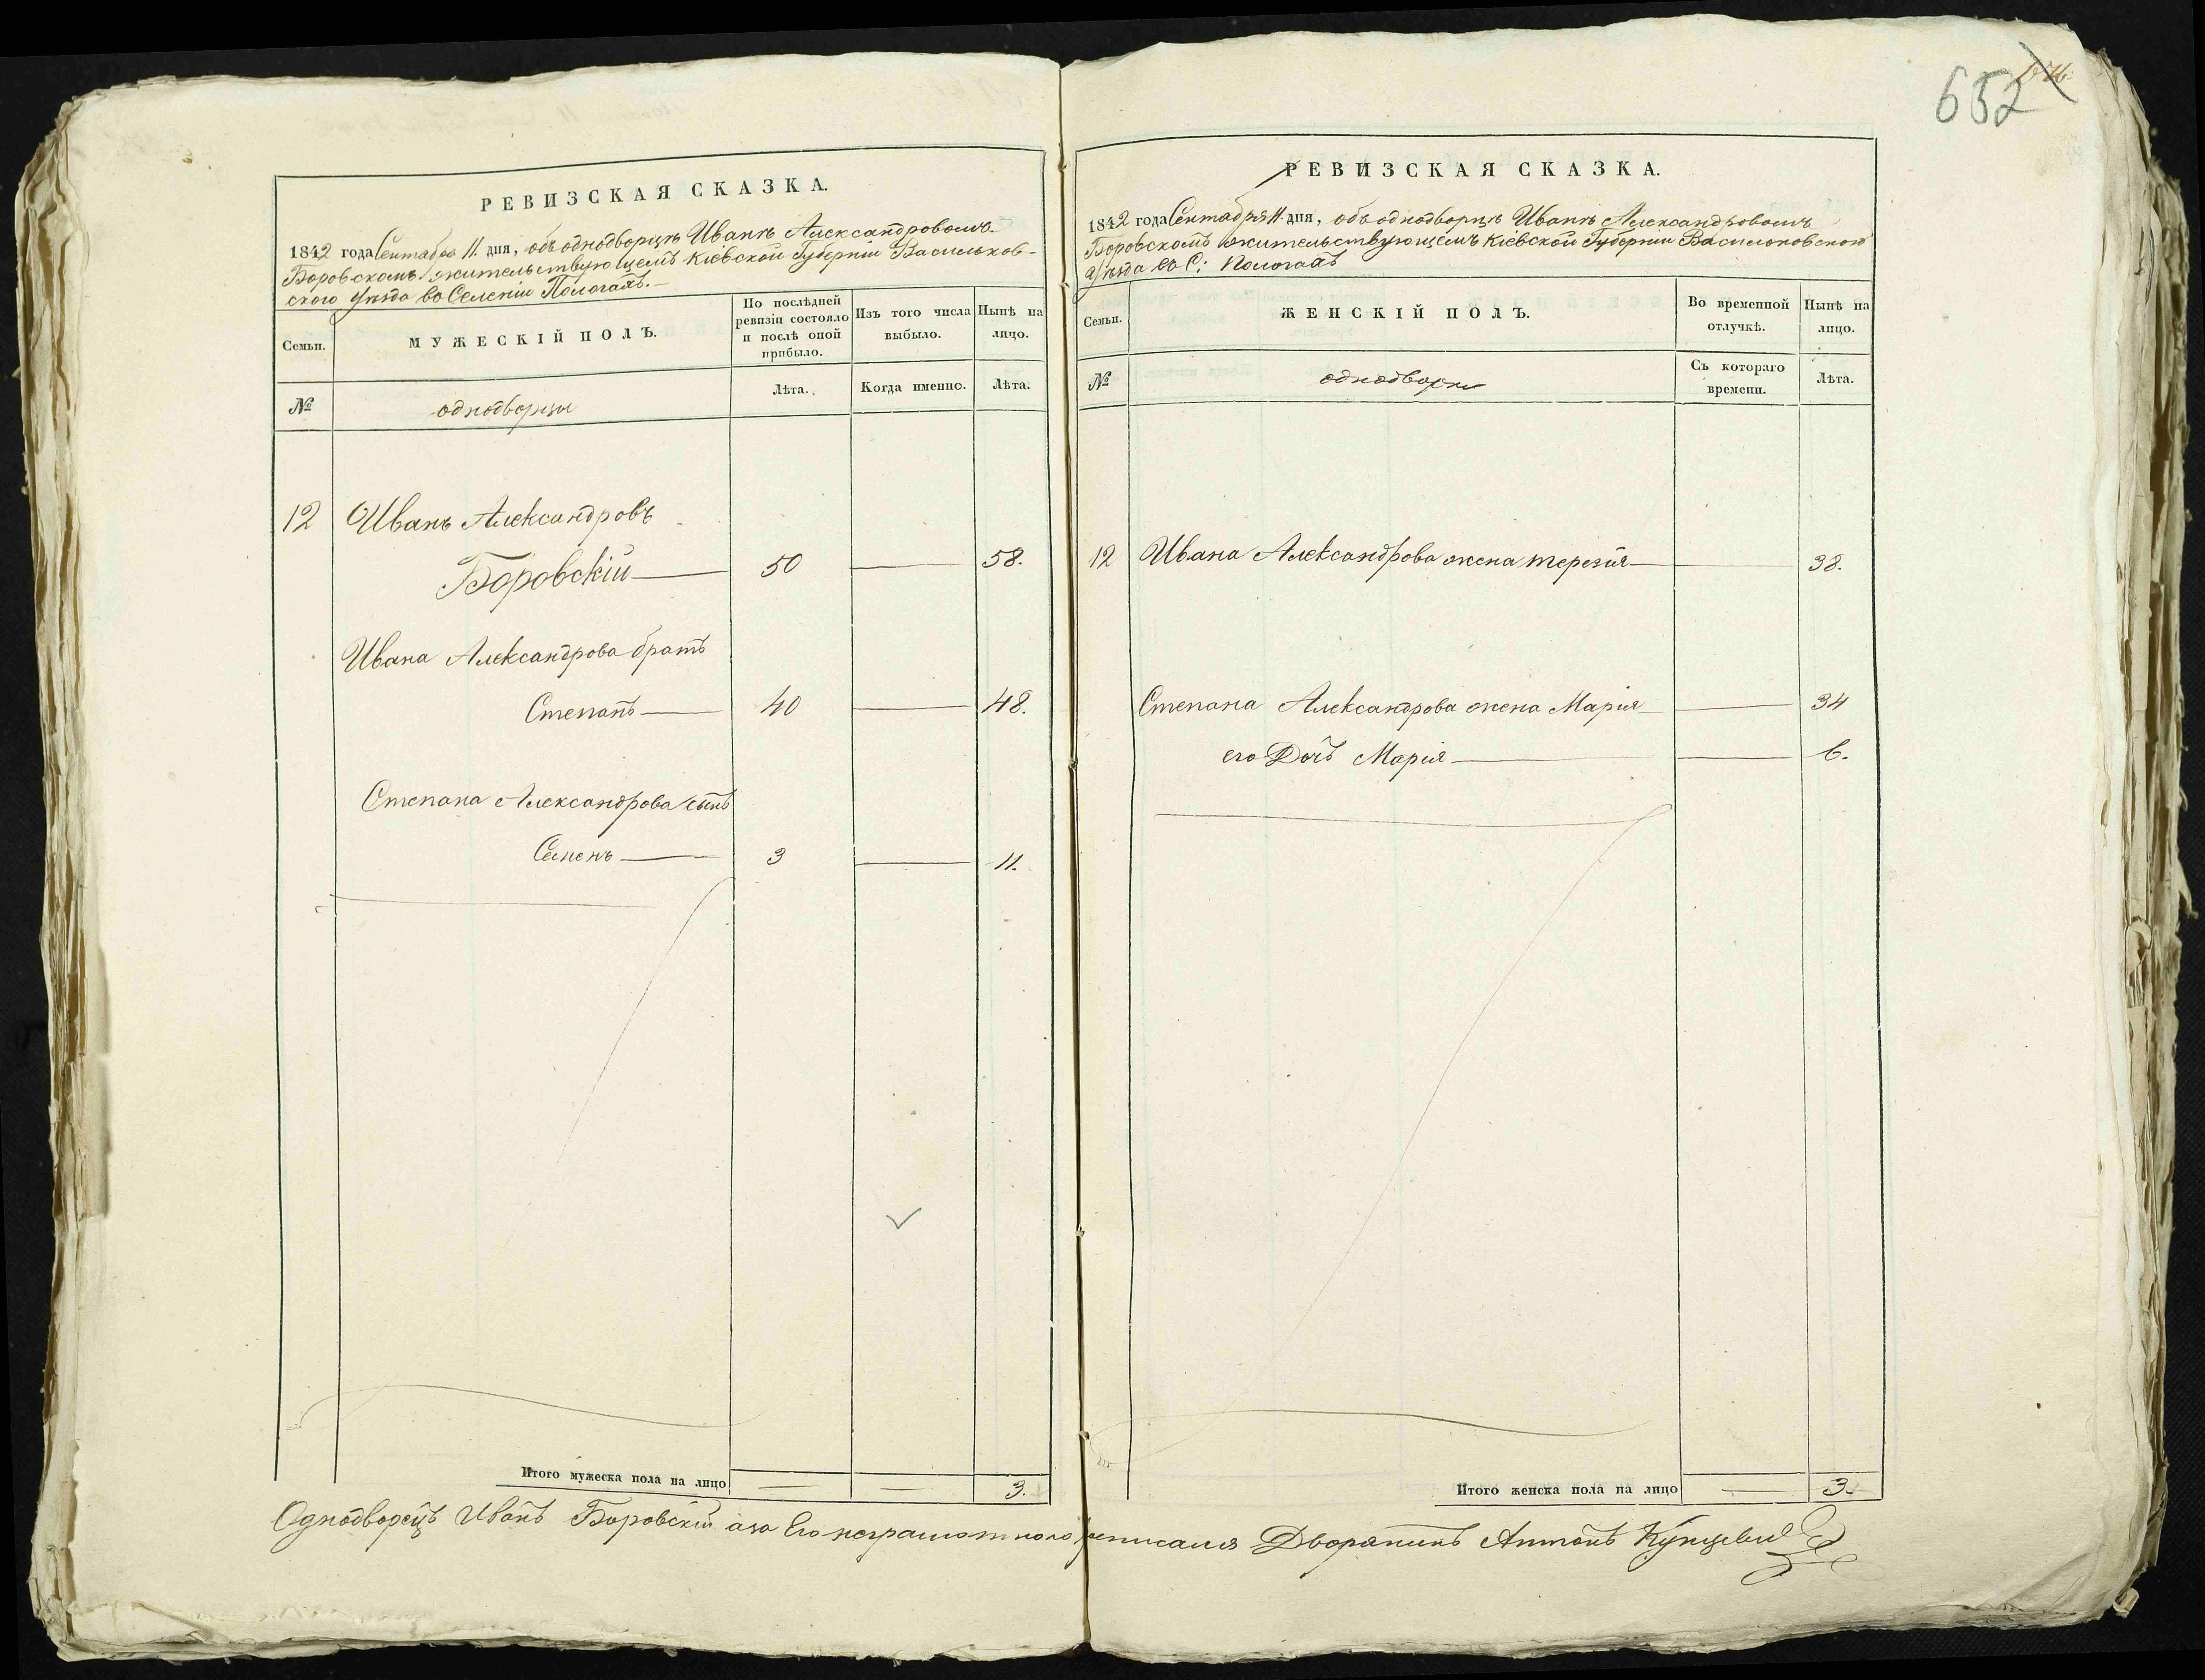 652
РЕВИЗСКАЯ СКАЗКА.
1842 года Сентября 11. дня, объ однодворцѣ Иванѣ Александровомъ
Боровскомъ жительствующемъ Кіевской Губерніи Васильков-
ского уѣзда во Селеніи Пологахъ.
Семьи.
МУЖЕСКІЙ ПОЛЪ.
По послѣдней ревизіи состояло и послѣ оной прибыло.
Изъ того числа выбыло.
Нынѣ на лицо.
№
однодворцы
Лѣта.
Когда именно.
Лѣта.
12 Иванъ Александровъ
Боровскій — 50 — 58.
Ивана Александрова братъ
Степанъ — 40 — 48.
Степана Александрова сынъ
Семенъ — 3 — 11.
Итого мужеска пола на лицо — — 3.
РЕВИЗСКАЯ СКАЗКА.
1842 года Сентября 11. дня, объ однодворцѣ Иванѣ Александровомъ
Боровскомъ жительствующемъ Кіевской Губерніи Васильковского
уѣзда во С: Пологахъ
Семьи.
ЖЕНСКІЙ ПОЛЪ.
Во временной отлучкѣ.
Нынѣ на лицо.
№
однодворки
Съ котораго времени.
Лѣта.
12 Ивана Александрова жена терезія — — 38.
Степана Александрова жена Марія — — 34
его Дочъ Марія — — 6.
Итого женска пола на лицо — 3.
Однодворецъ Иванъ Боровскій а за Его неграмотного росписался Дворянинъ Антонъ Кунцевич